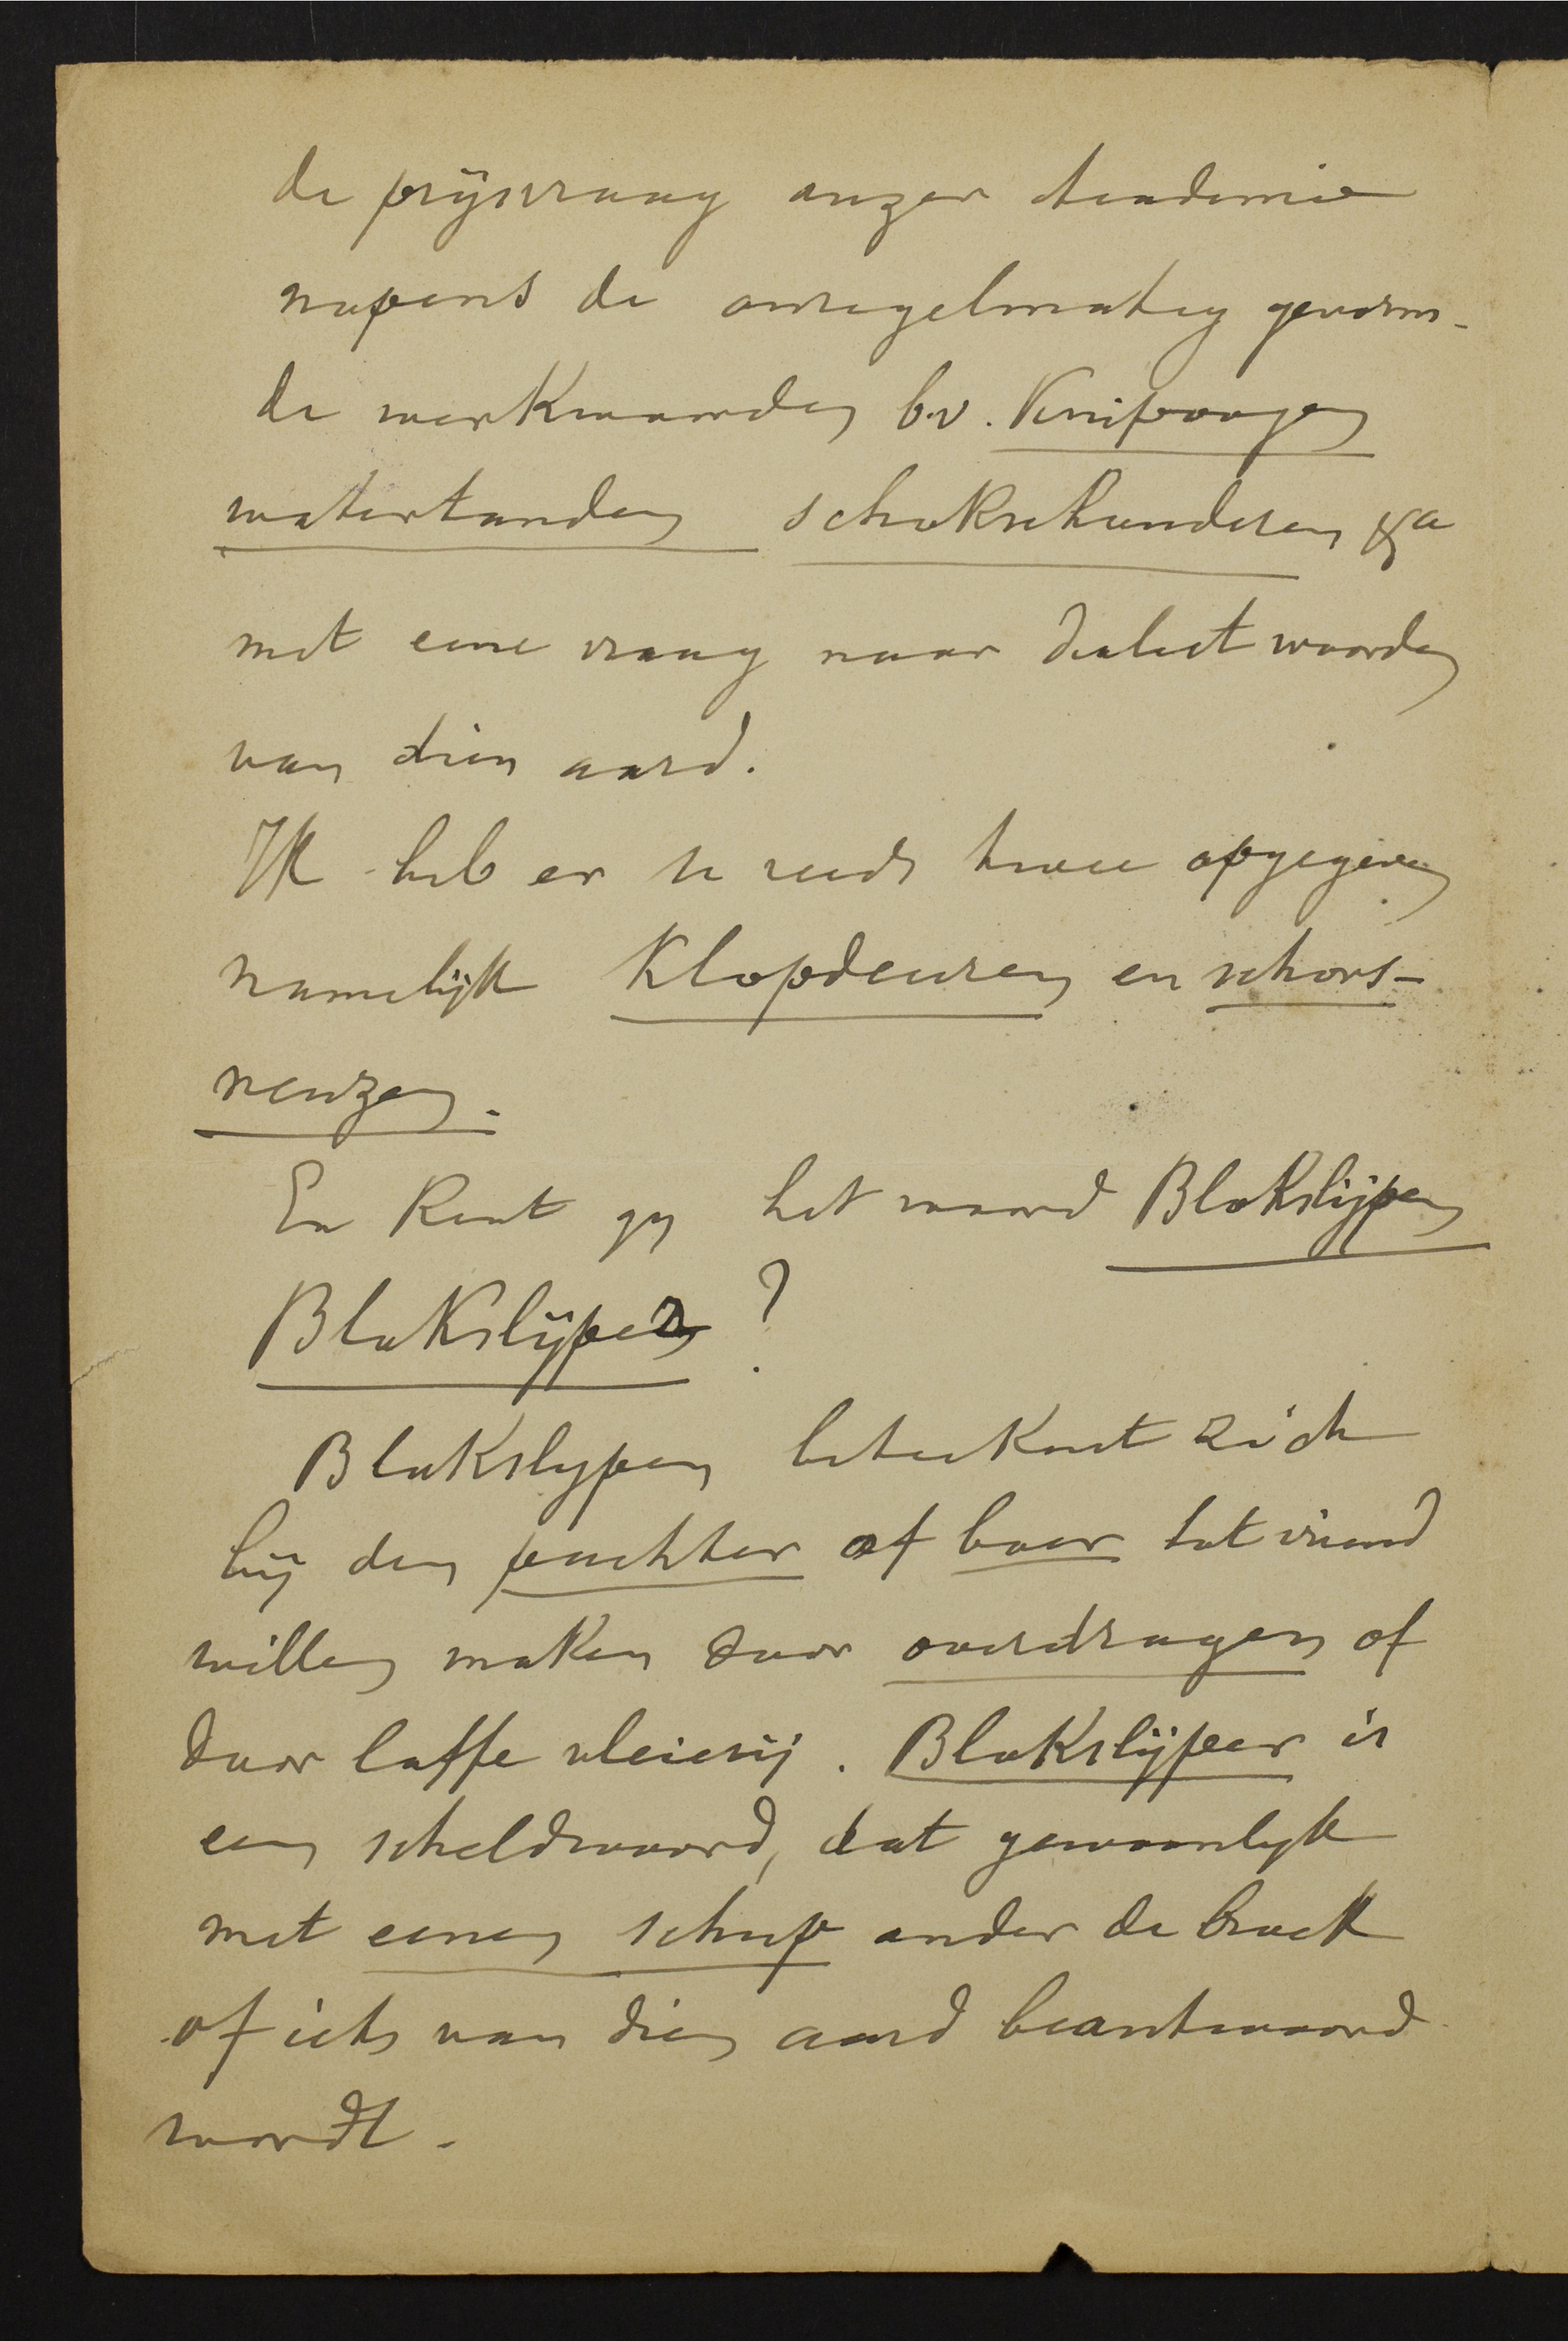 de prijsvraag onzer Academie
nopens de onregelmatig gevorm-
de werkwoorden b.v. Knipoogen
watertanden schokschouderen &a
met eene vraag naar dialectwoorden
van dien aard.
Ik heb er u reeds twee opgegeven
namelijk Klopdeuren en schors-
neuzen.
En Kent gy het woord Blokslijpen
Blokslijper ?
Blokslypen beteekent zich
bij den pachter of boer tot vriend
willen maken door overdragen of
door laffe vleierij. Blokslijper is
een scheldwoord, dat gewoonlyk
met eenen schup onder de broek
of iets van dien aard beantwoord
wordt.